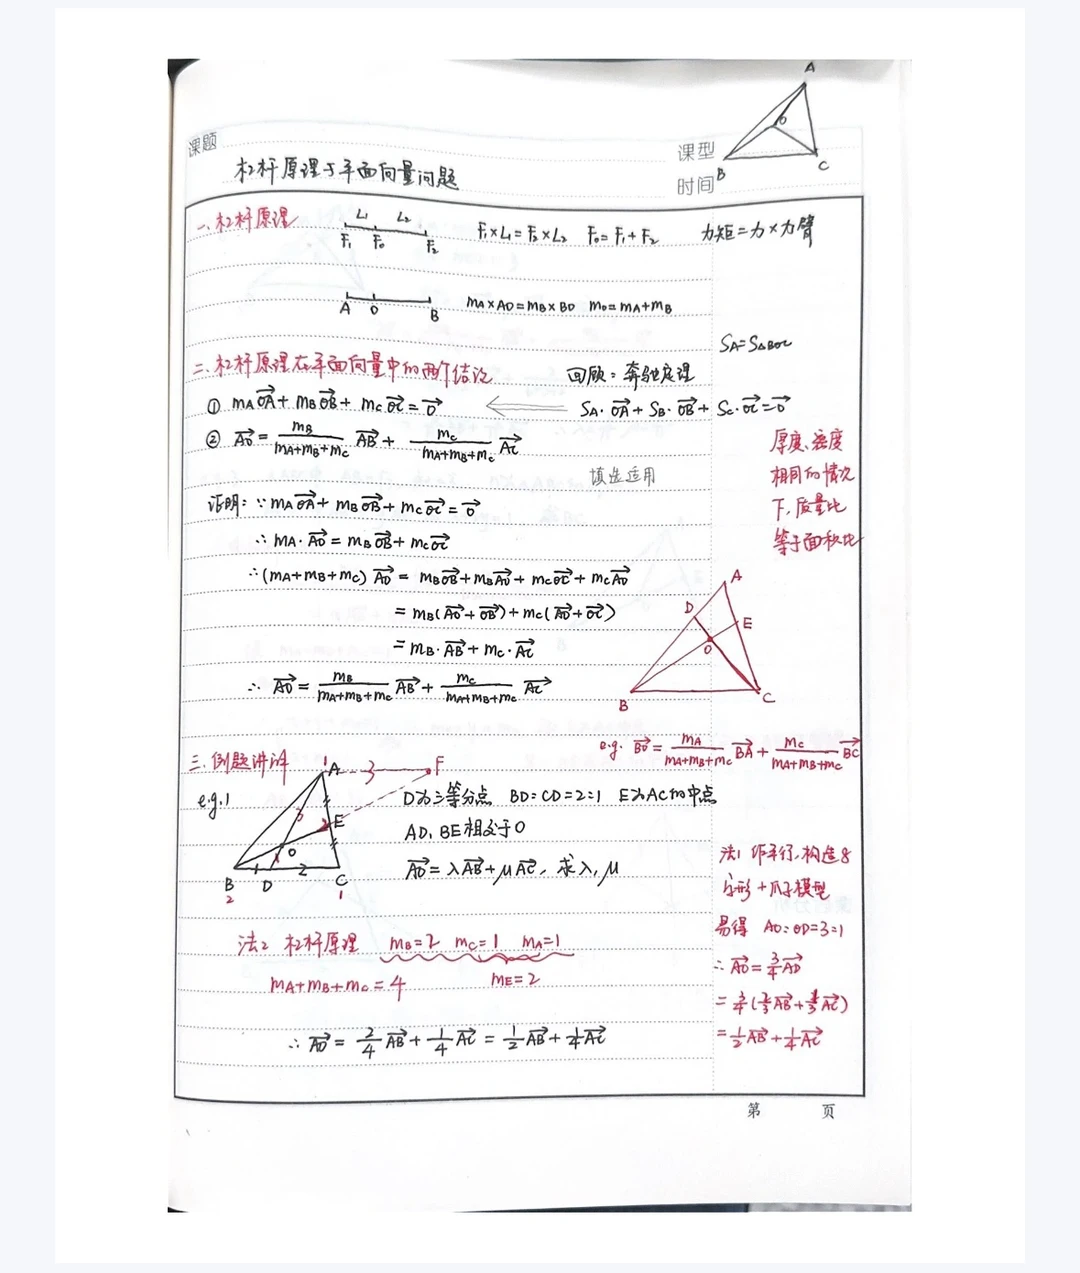 课题
杠杆原理与平面向量问题
课型
时间
A
O
B
C
一、杠杆原理
L₁ L₂
F₁ F₀ F₂
F₁×L₁=F₂×L₂ F₀=F₁+F₂
力矩=力×力臂
A O B
mA×AO=mB×BO mo=mA+mB
SA=S△BOC
二、杠杆原理在平面向量中的两个结论
回顾：奔驰定理
① mA\overrightarrow{OA}+mB\overrightarrow{OB}+mC\overrightarrow{OC}=\overrightarrow{0}
SA·\overrightarrow{OA}+SB·\overrightarrow{OB}+SC·\overrightarrow{OC}=\overrightarrow{0}
② \overrightarrow{AO}=\frac{mB}{mA+mB+mC}\overrightarrow{AB}+\frac{mC}{mA+mB+mC}\overrightarrow{AC}
填选适用
厚度、密度
相同的情况
下,质量比
等于面积比
证明：∵mA\overrightarrow{OA}+mB\overrightarrow{OB}+mC\overrightarrow{OC}=\overrightarrow{0}
∴mA·\overrightarrow{AO}=mB\overrightarrow{OB}+mC\overrightarrow{OC}
∴(mA+mB+mC)\overrightarrow{AO}=mB\overrightarrow{OB}+mB\overrightarrow{AO}+mC\overrightarrow{OC}+mC\overrightarrow{AO}
=mB(\overrightarrow{AO}+\overrightarrow{OB})+mC(\overrightarrow{AO}+\overrightarrow{OC})
=mB·\overrightarrow{AB}+mC·\overrightarrow{AC}
∴\overrightarrow{AO}=\frac{mB}{mA+mB+mC}\overrightarrow{AB}+\frac{mC}{mA+mB+mC}\overrightarrow{AC}
A
D
E
O
B
C
e.g. \overrightarrow{BO}=\frac{mA}{mA+mB+mC}\overrightarrow{BA}+\frac{mC}{mA+mB+mC}\overrightarrow{BC}
三、例题讲评
e.g.1
1 A 3 F
3 2 E
O
1
1 2
B D C
2 1
D为三等分点 BD:CD=2:1 E为AC的中点
AD,BE相交于O
\overrightarrow{AO}=λ\overrightarrow{AB}+μ\overrightarrow{AC},求λ,μ
法1 作平行,构造8
字形+爪子模型
易得 AO:OD=3:1
∴\overrightarrow{AO}=\frac{3}{4}\overrightarrow{AD}
=\frac{3}{4}(\frac{2}{3}\overrightarrow{AB}+\frac{1}{3}\overrightarrow{AC})
=\frac{1}{2}\overrightarrow{AB}+\frac{1}{4}\overrightarrow{AC}
法2 杠杆原理 mB=2 mC=1 mA=1
mA+mB+mC=4 mE=2
∴\overrightarrow{AO}=\frac{2}{4}\overrightarrow{AB}+\frac{1}{4}\overrightarrow{AC}=\frac{1}{2}\overrightarrow{AB}+\frac{1}{4}\overrightarrow{AC}
第 页